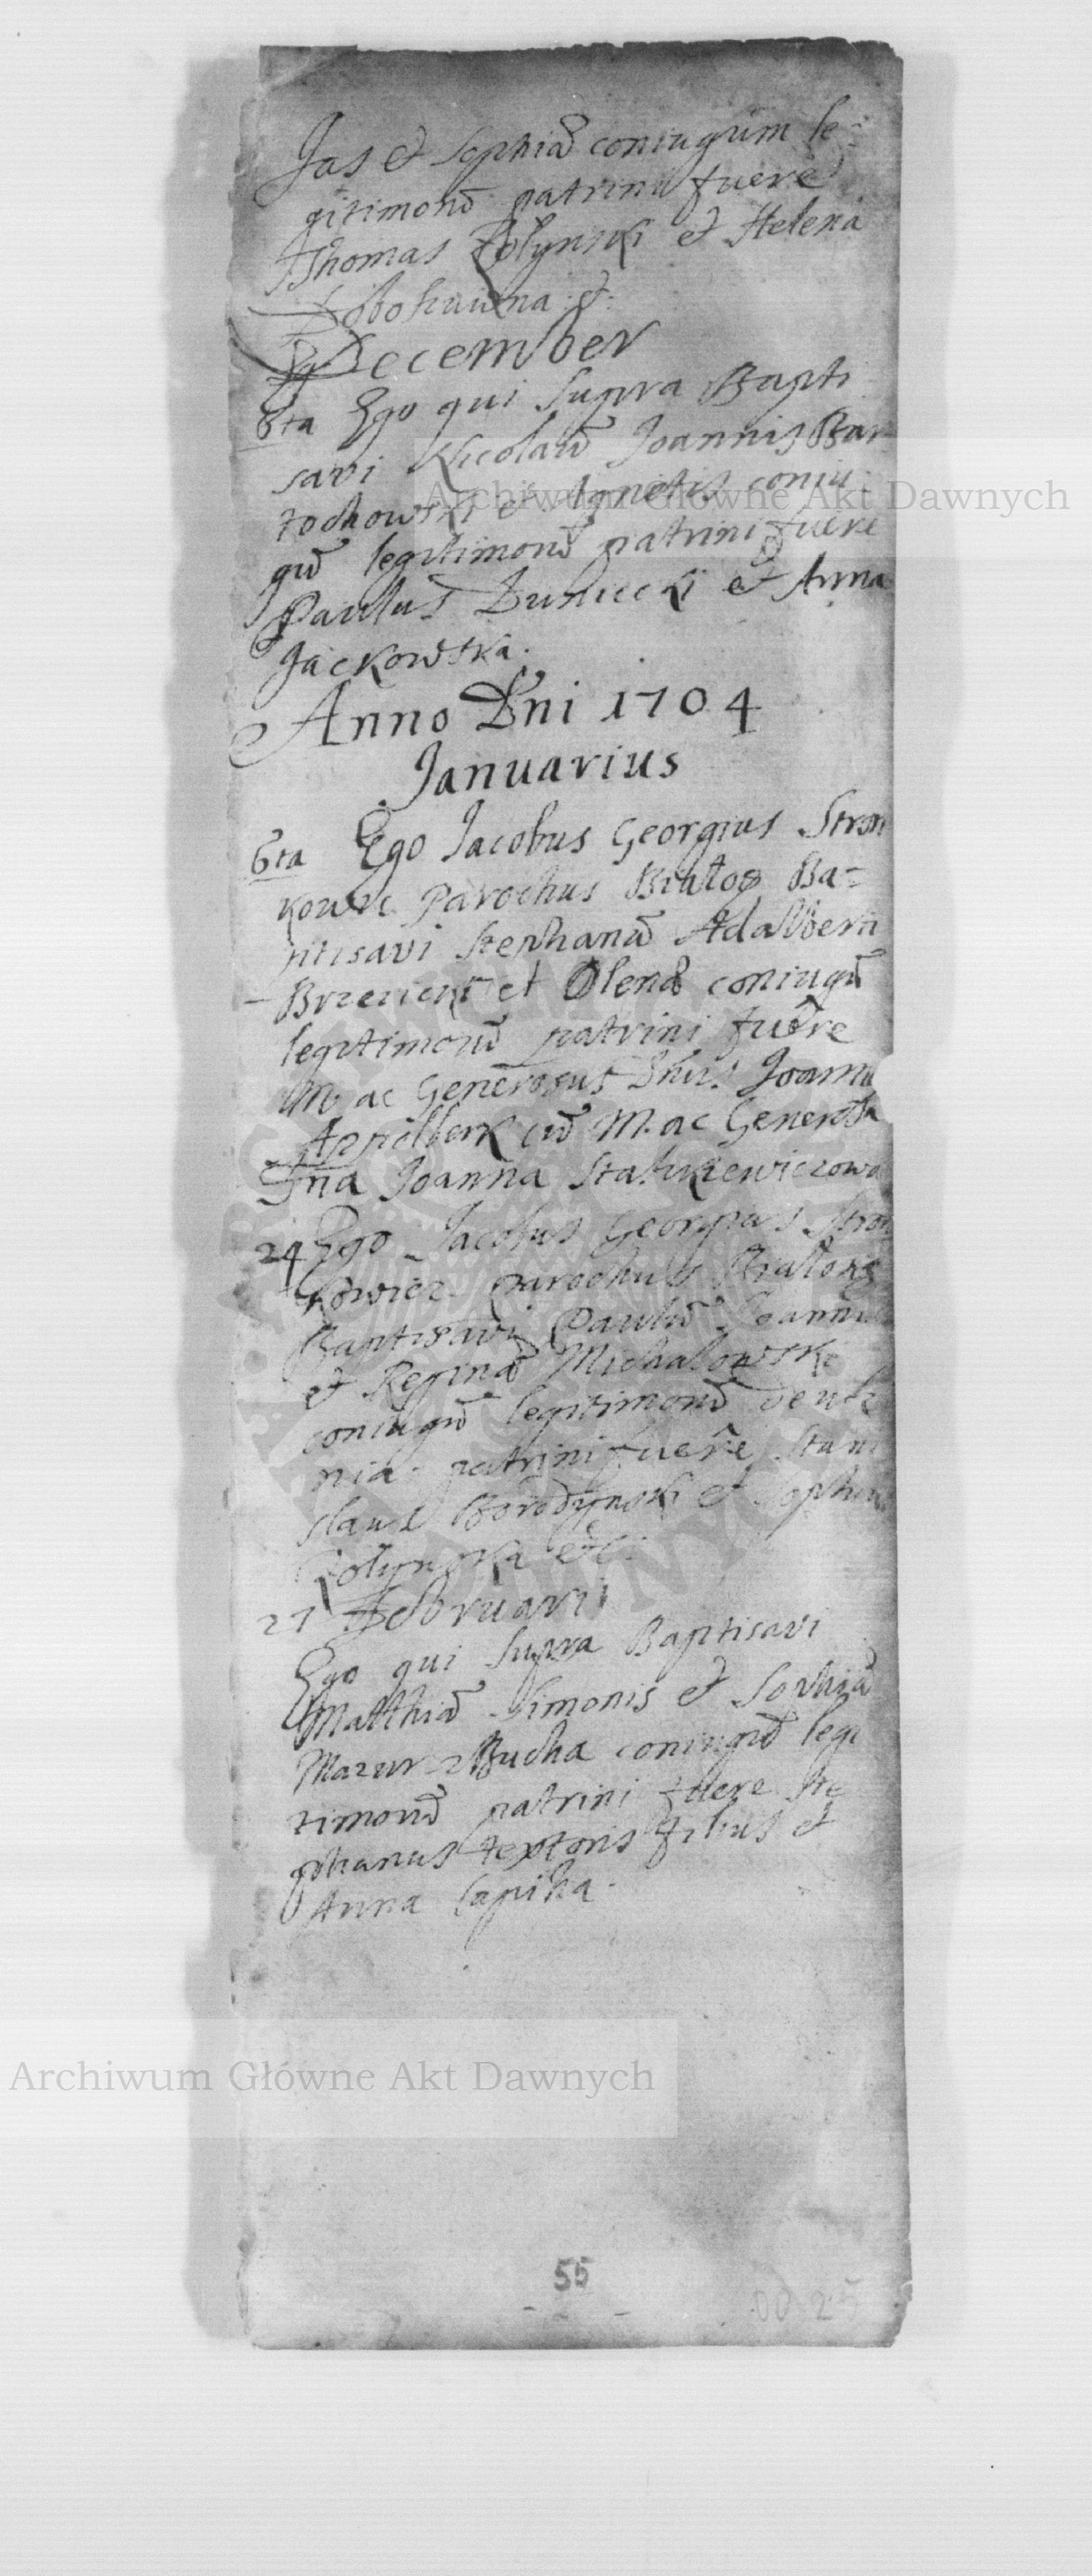 Jas et Sophiæ coniugum le=
gitimorū patrini fuere
Thomas Rolynski et Helena
December
8ta Ego qui supra Bapti
savi Nicolaū Joannis Bar
zochowski et Agnetis coniu
gū legitimorū patrini fuere
Paulus Duniecki et Anna
Jackowska.
Anno Dni 1704
Januarius
6ta Ego Jacobus Georgius Stron
kowic Parochus Białog Ba=
ptisavi Stephanū Adalberti
Brzezicki et Olenæ coniugū
legitimorū patrini fuere
M ac Generosus Dnus Joannes
Appelberk cū M. ac Generosa
Dna Joanna Statkiewiczowa
24 Ego Jacobus Georgius Stron
kowicz Parochus
Baptisavi Paulū Joannis
et Reginæ Michalowski
coniugū legitimorū de
nia. patrini fuere Stani
slaus Borodynski et Sophia
Rolynska etc.
27 Februarii
Ego qui supra Baptisavi
Matthiā Simonis et Sophiæ
Mazur Bucha coniugū legi
timorū patrini fuere Ste
phanus textoris filius et
Anna Sapiha.
55
Archiwum Główne Akt Dawnych
Archiwum Główne Akt Dawnych